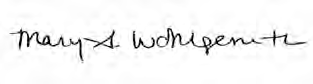 Mary S. Wohlgemuth